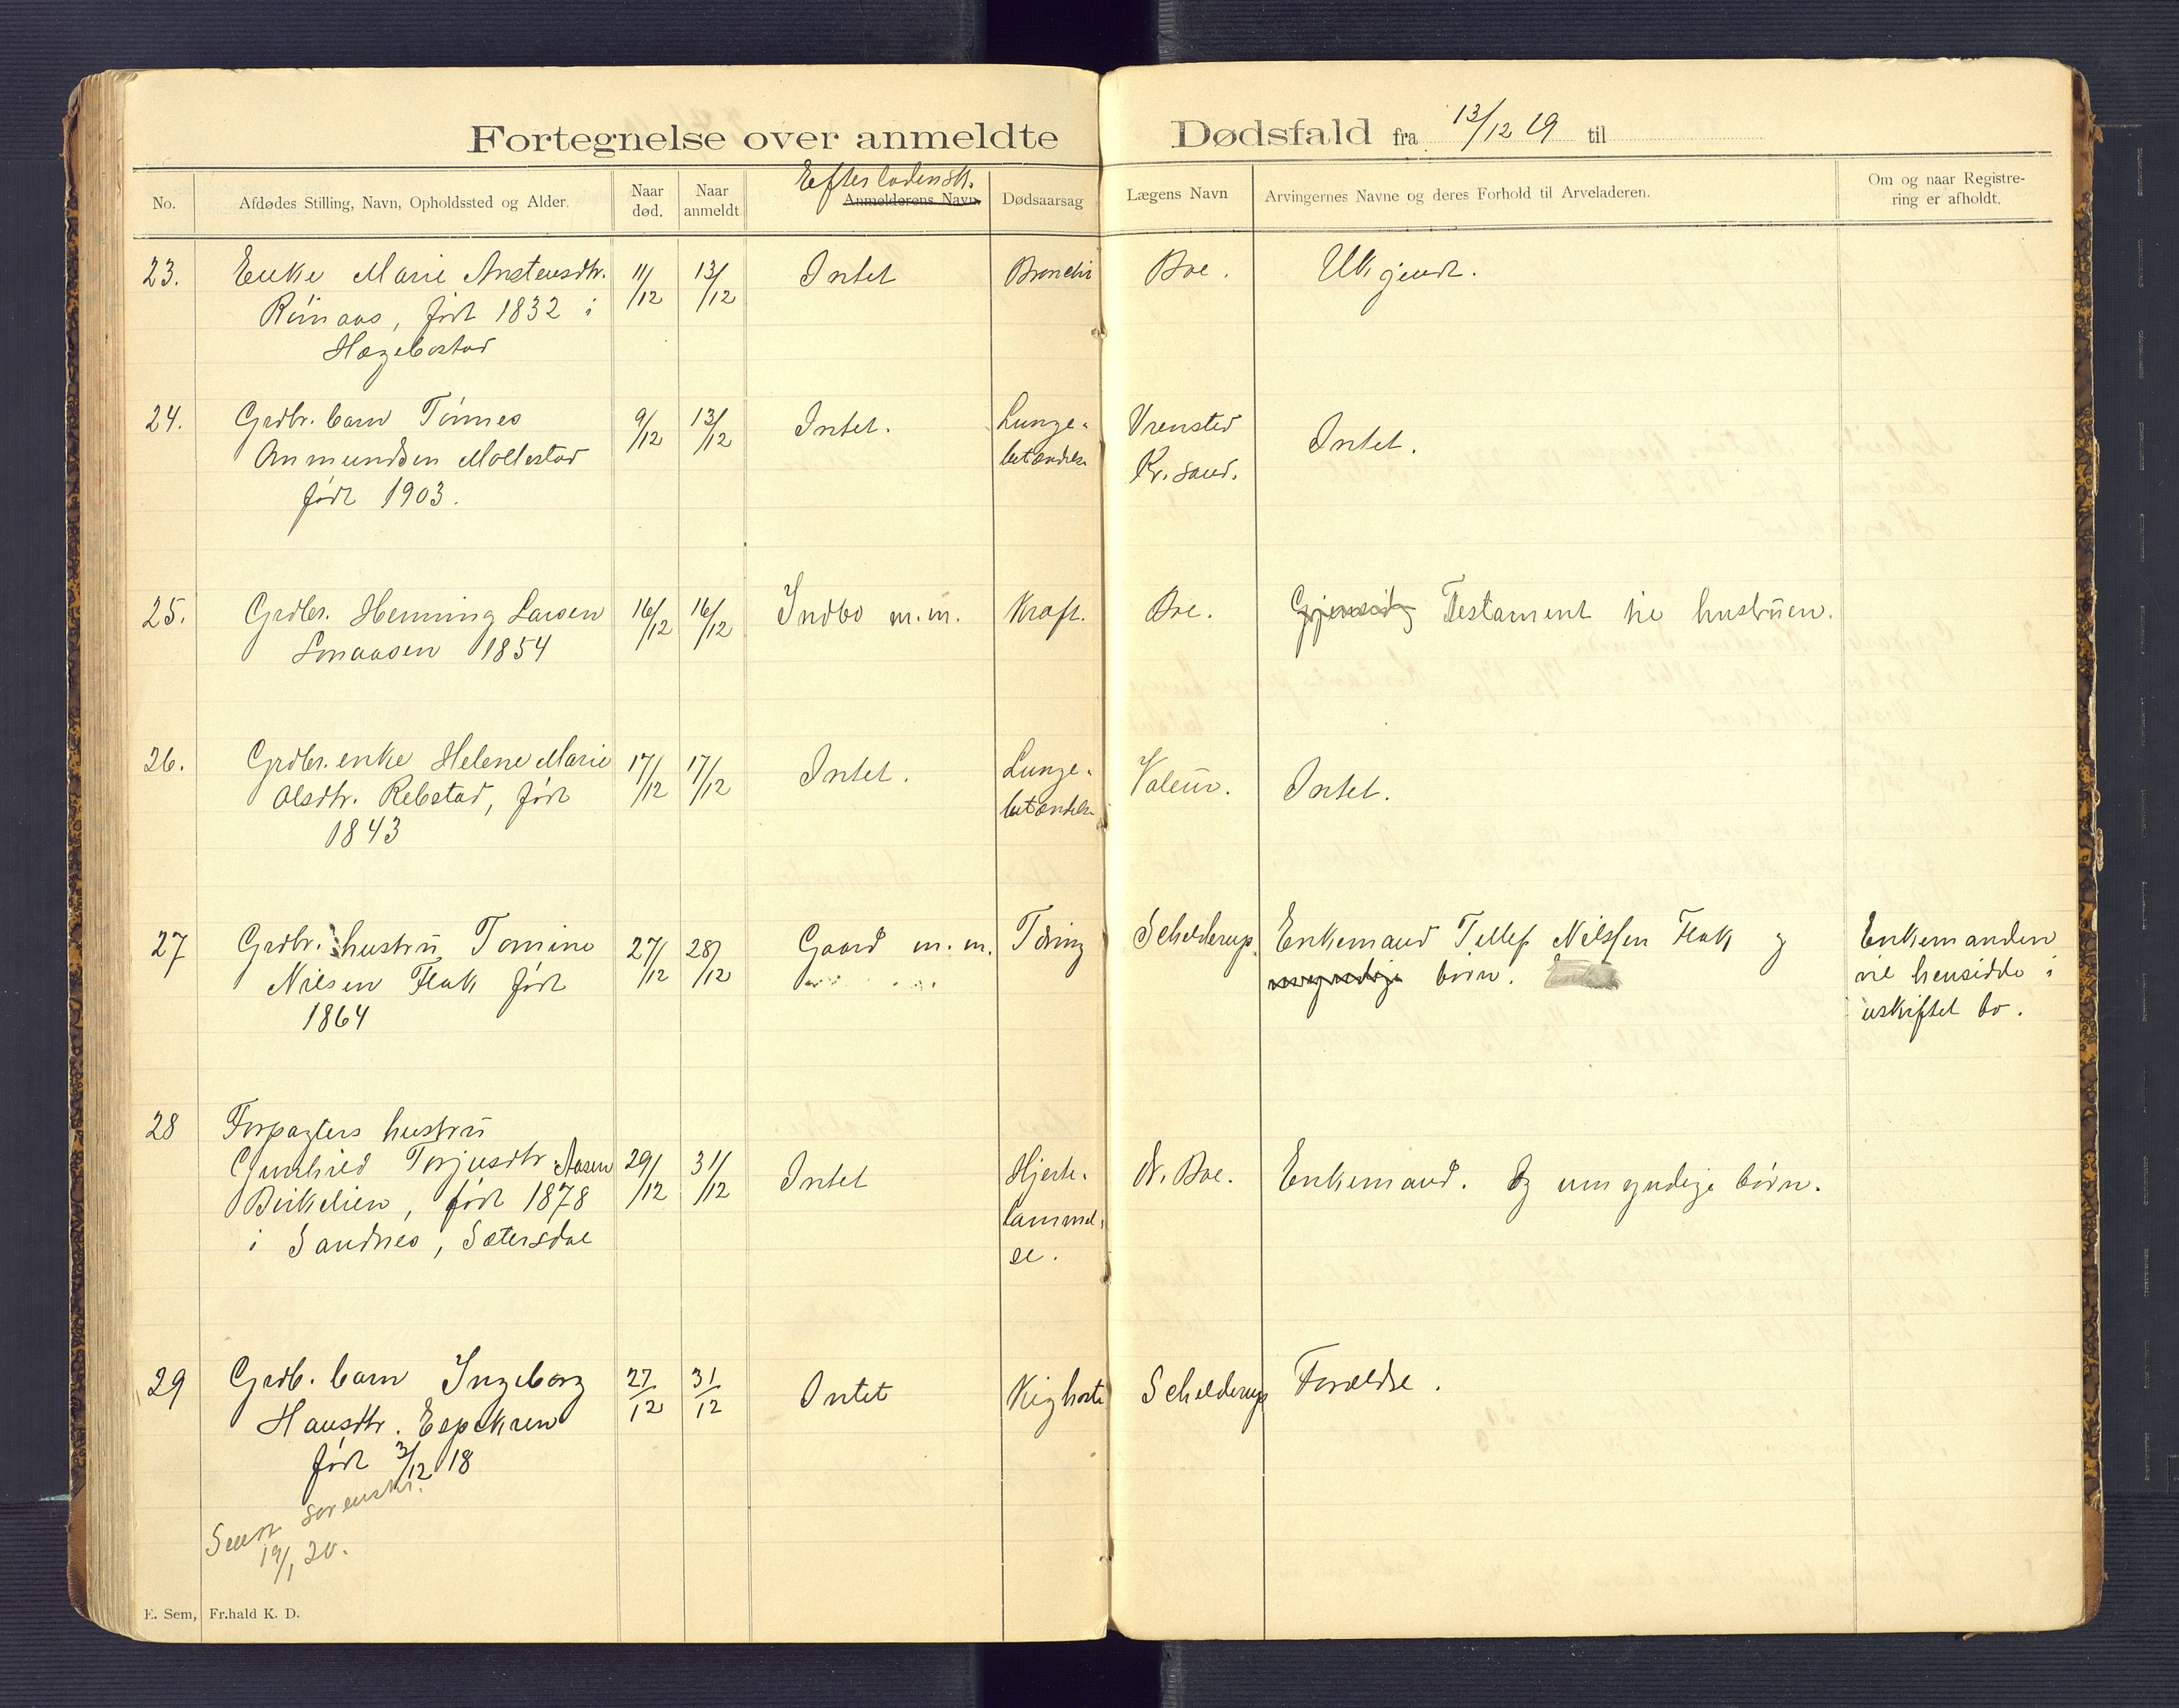 Fortegnelse over anmeldte Dødsfald fra 13/12 19 til
No.
Afdødes Stilling, Navn, Opholdssted og Alder.
Naar død.
Naar anmeldt
Efterladensk.
Anmelderens Navn
Dødsaarsag
Lægens Navn
Arvingernes Navne og deres Forhold til Arveladeren.
Om og naar Registre-
ring er afholdt.
23. Enke Marie Anstensdtr. 11/12 13/12 Intet Bronchi Boe. Ukjendt.
Rönaas, født 1832 i
Hægebostad
24. Grdbr. barn Tönnes 9/12 13/12 Intet. Lunge- Vrensted Intet.
Anmundsen Mollestad betændelse Kr.sand.
født 1903.
25. Grdbr. Henning Larsen 16/12 16/12 Indbo m.m. Kræft. Boe. Gjensidig Testament til hustruen.
Smaasen 1854
26. Grdbr. enke Helene Marie 17/12 17/12 Intet. Lunge- Valeur. Intet.
Olsdtr. Rebstad, født betændelse
1843
27 Grdbr. hustru Tomine 27/12 28/12 Gaard m.m. Tæring Schelderup. Enkemand Tellef Nilssen Flak og Enkemanden
Nilsen Flak født umyndige börn. vil hensidde i
1864 uskiftet bo.
28 Forpagters hustru
Gunhild Torjusdtr Aasen 29/12 31/12 Intet Hjerte- Dr. Boe. Enkemand. Og umyndige börn.
Birkelien, født 1878 lammel-
i Sandnes, Sætersdal se.
29 Grdb. barn Ingeborg 27/12 31/12 Intet Kighoste Schelderup Forældre.
Hansdtr. Espekren
født 3/12 18
Sendt sorenskr.
19/1 20.
E. Sem, Fr.hald K. D.